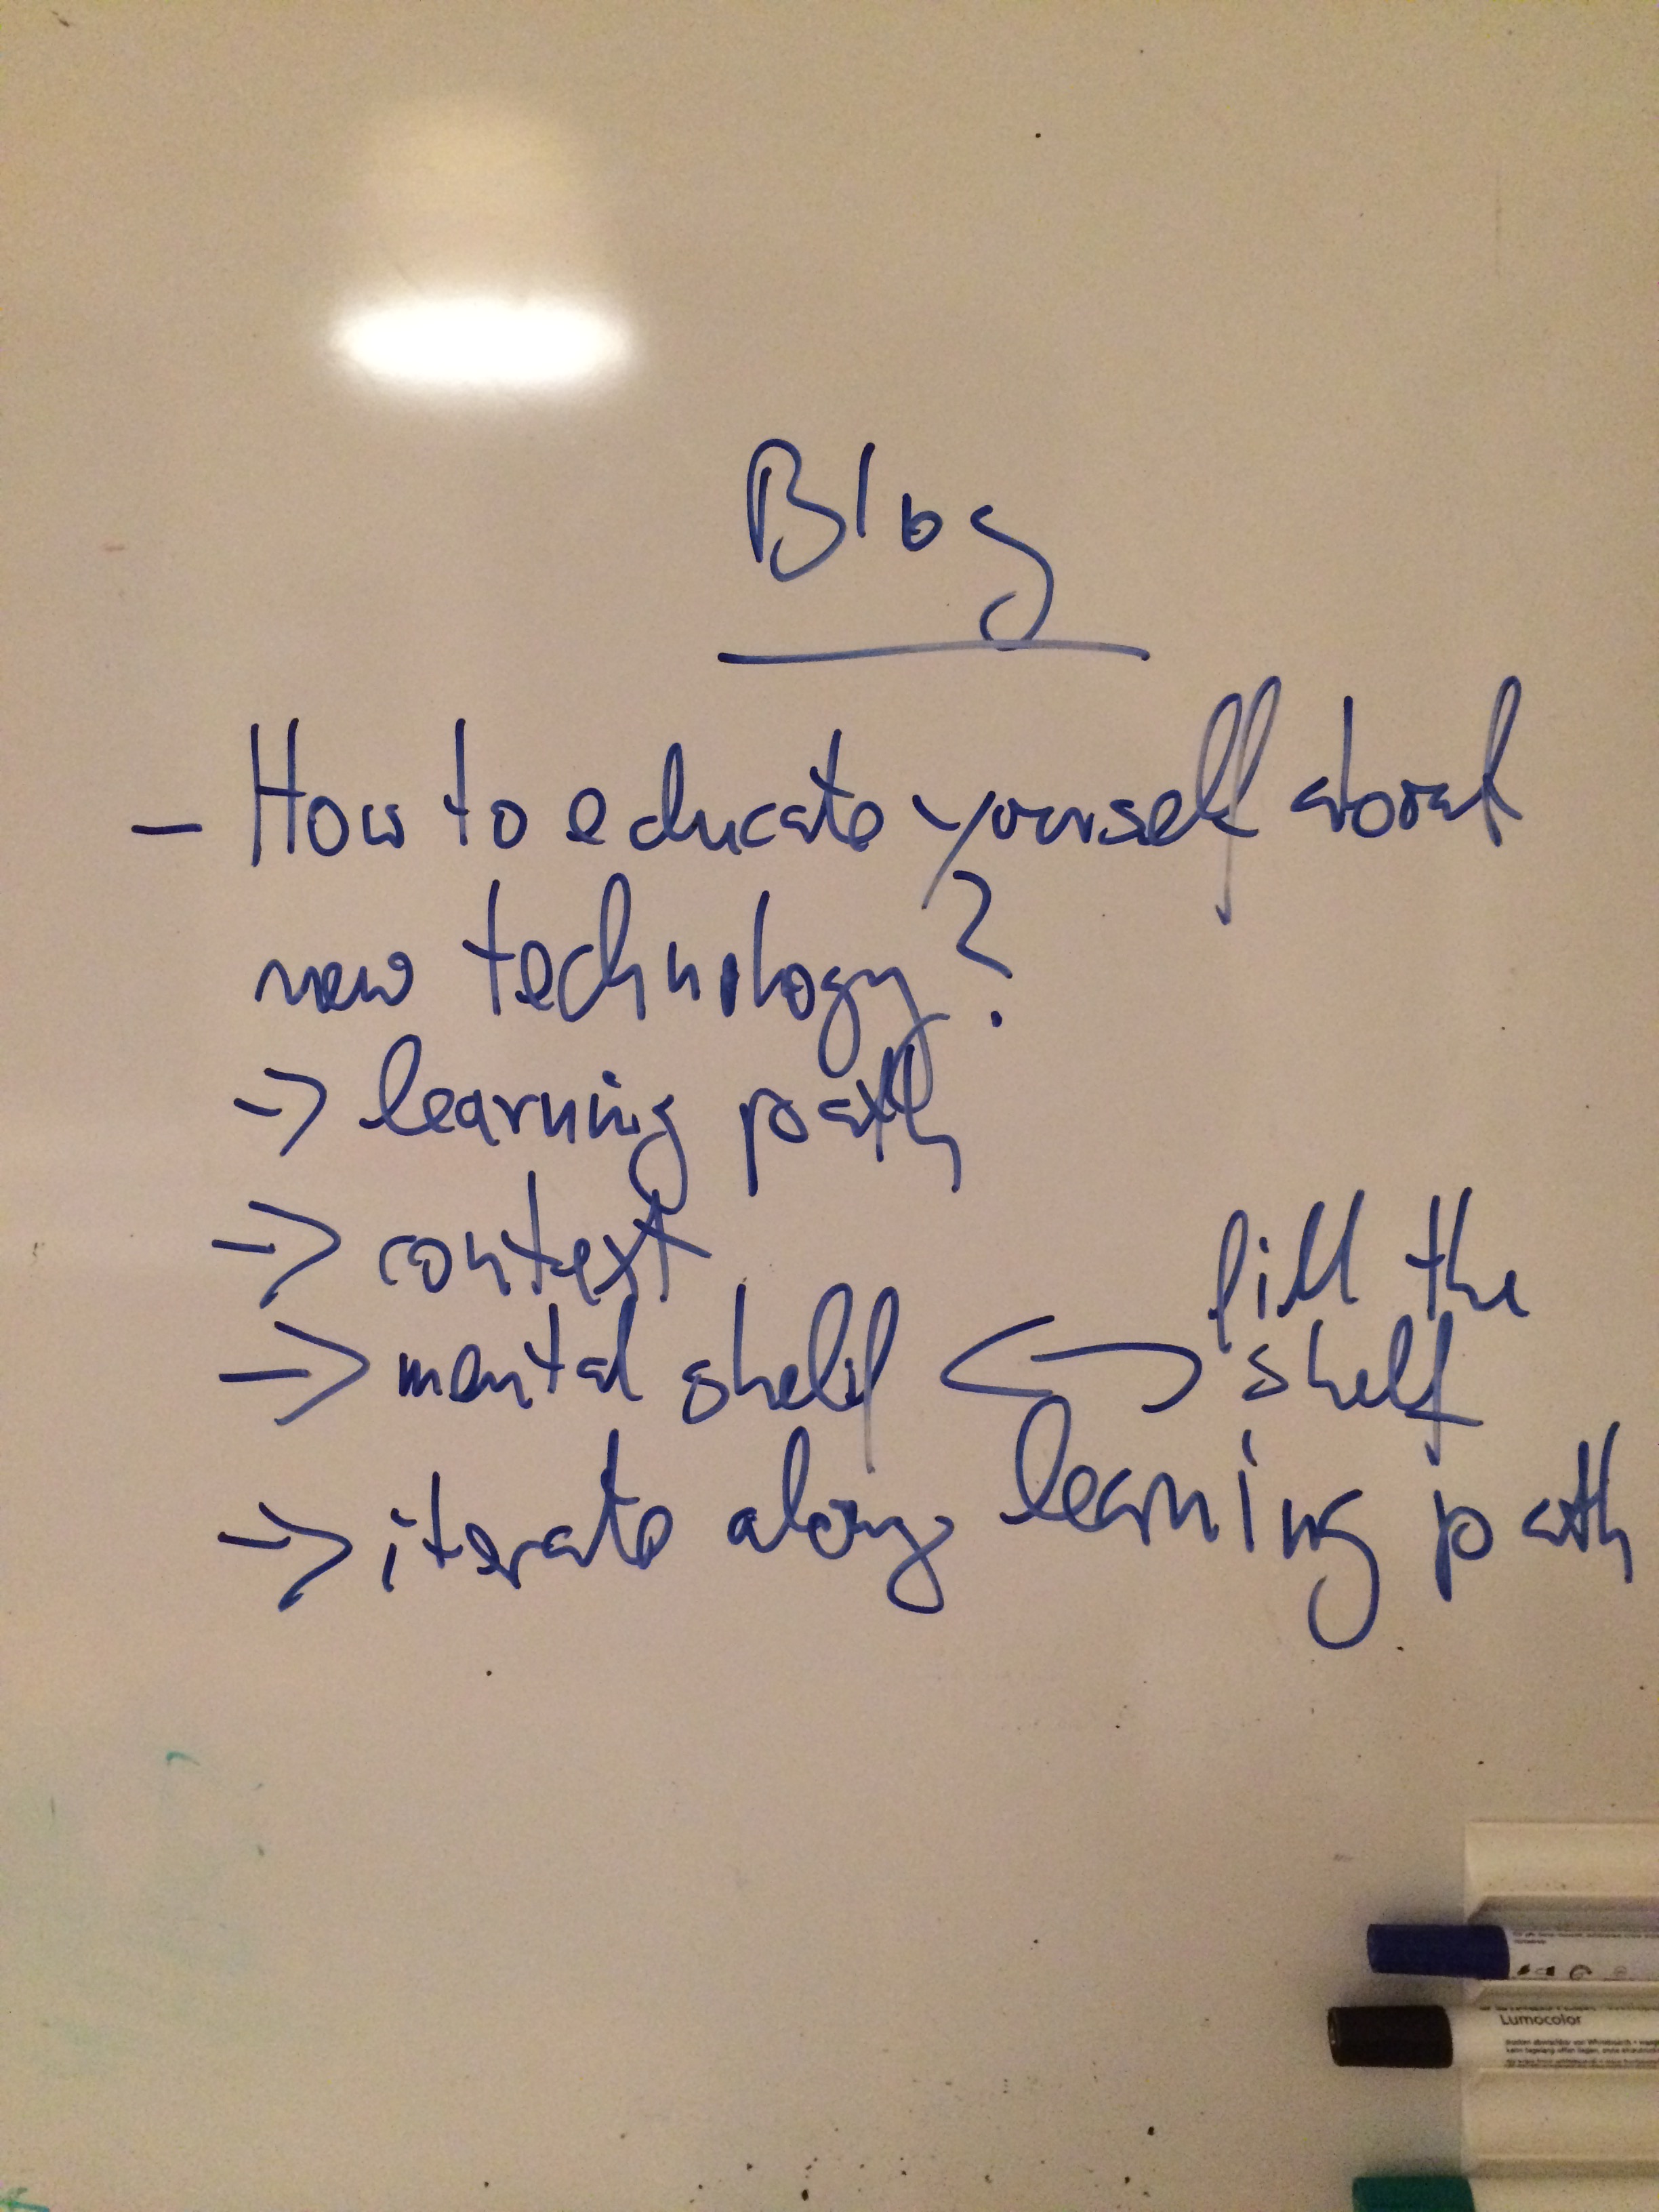 Blog
- How to educate yourself about
new technology?
-> learning path
-> context
fill the
-> mental shelf <- shelf
-> iterate along learning path
Lumocolor